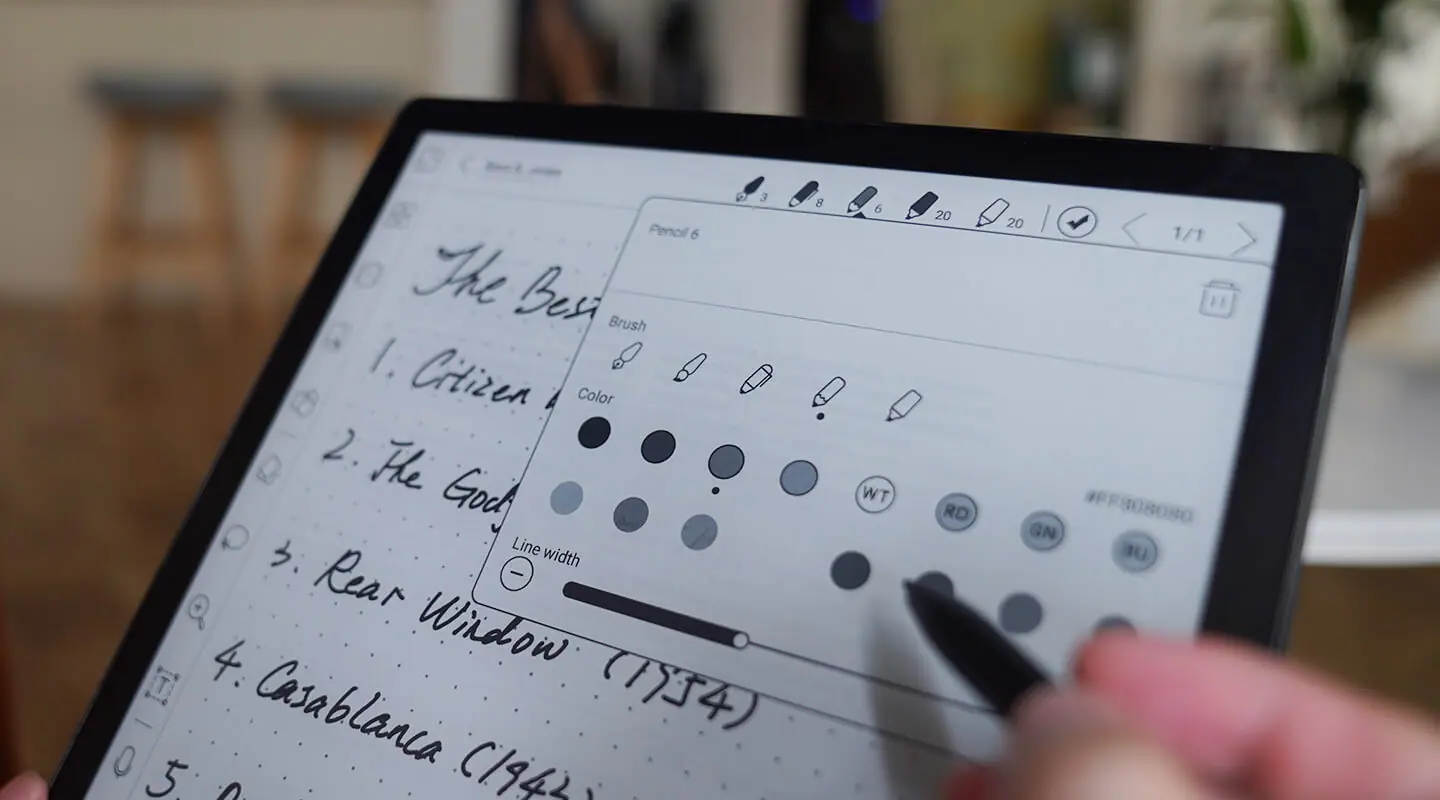 3 8 6 20 20 1/1
Pencil 6
The Best
Brush
1. Citizen
Color
2. The God
WT RD GN BU
#FF808080
Line width
3. Rear Window (1954)
4. Casablanca (1942)
5.